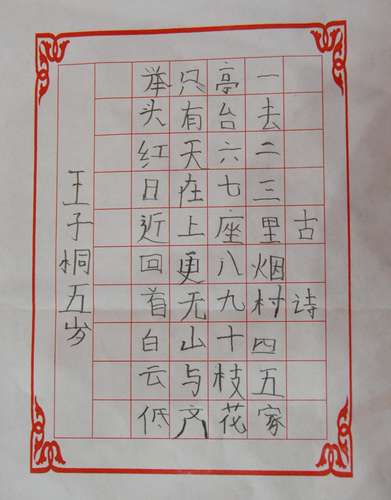 古诗
一去二三里烟村四五家
亭台六七座八九十枝花
只有天在上更无山与齐
举头红日近回首白云低
王子桐五岁